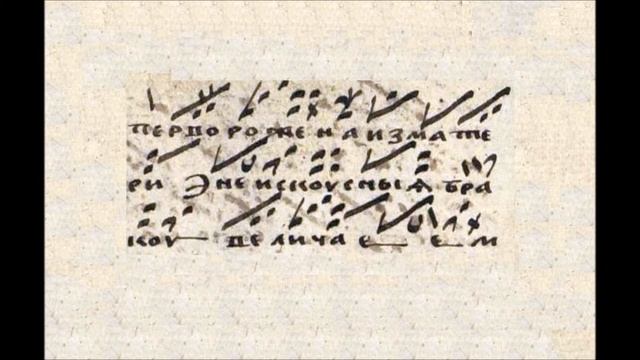 перворожена изматѣ
ри Э неискоусныѧ бра
коу велича е ем